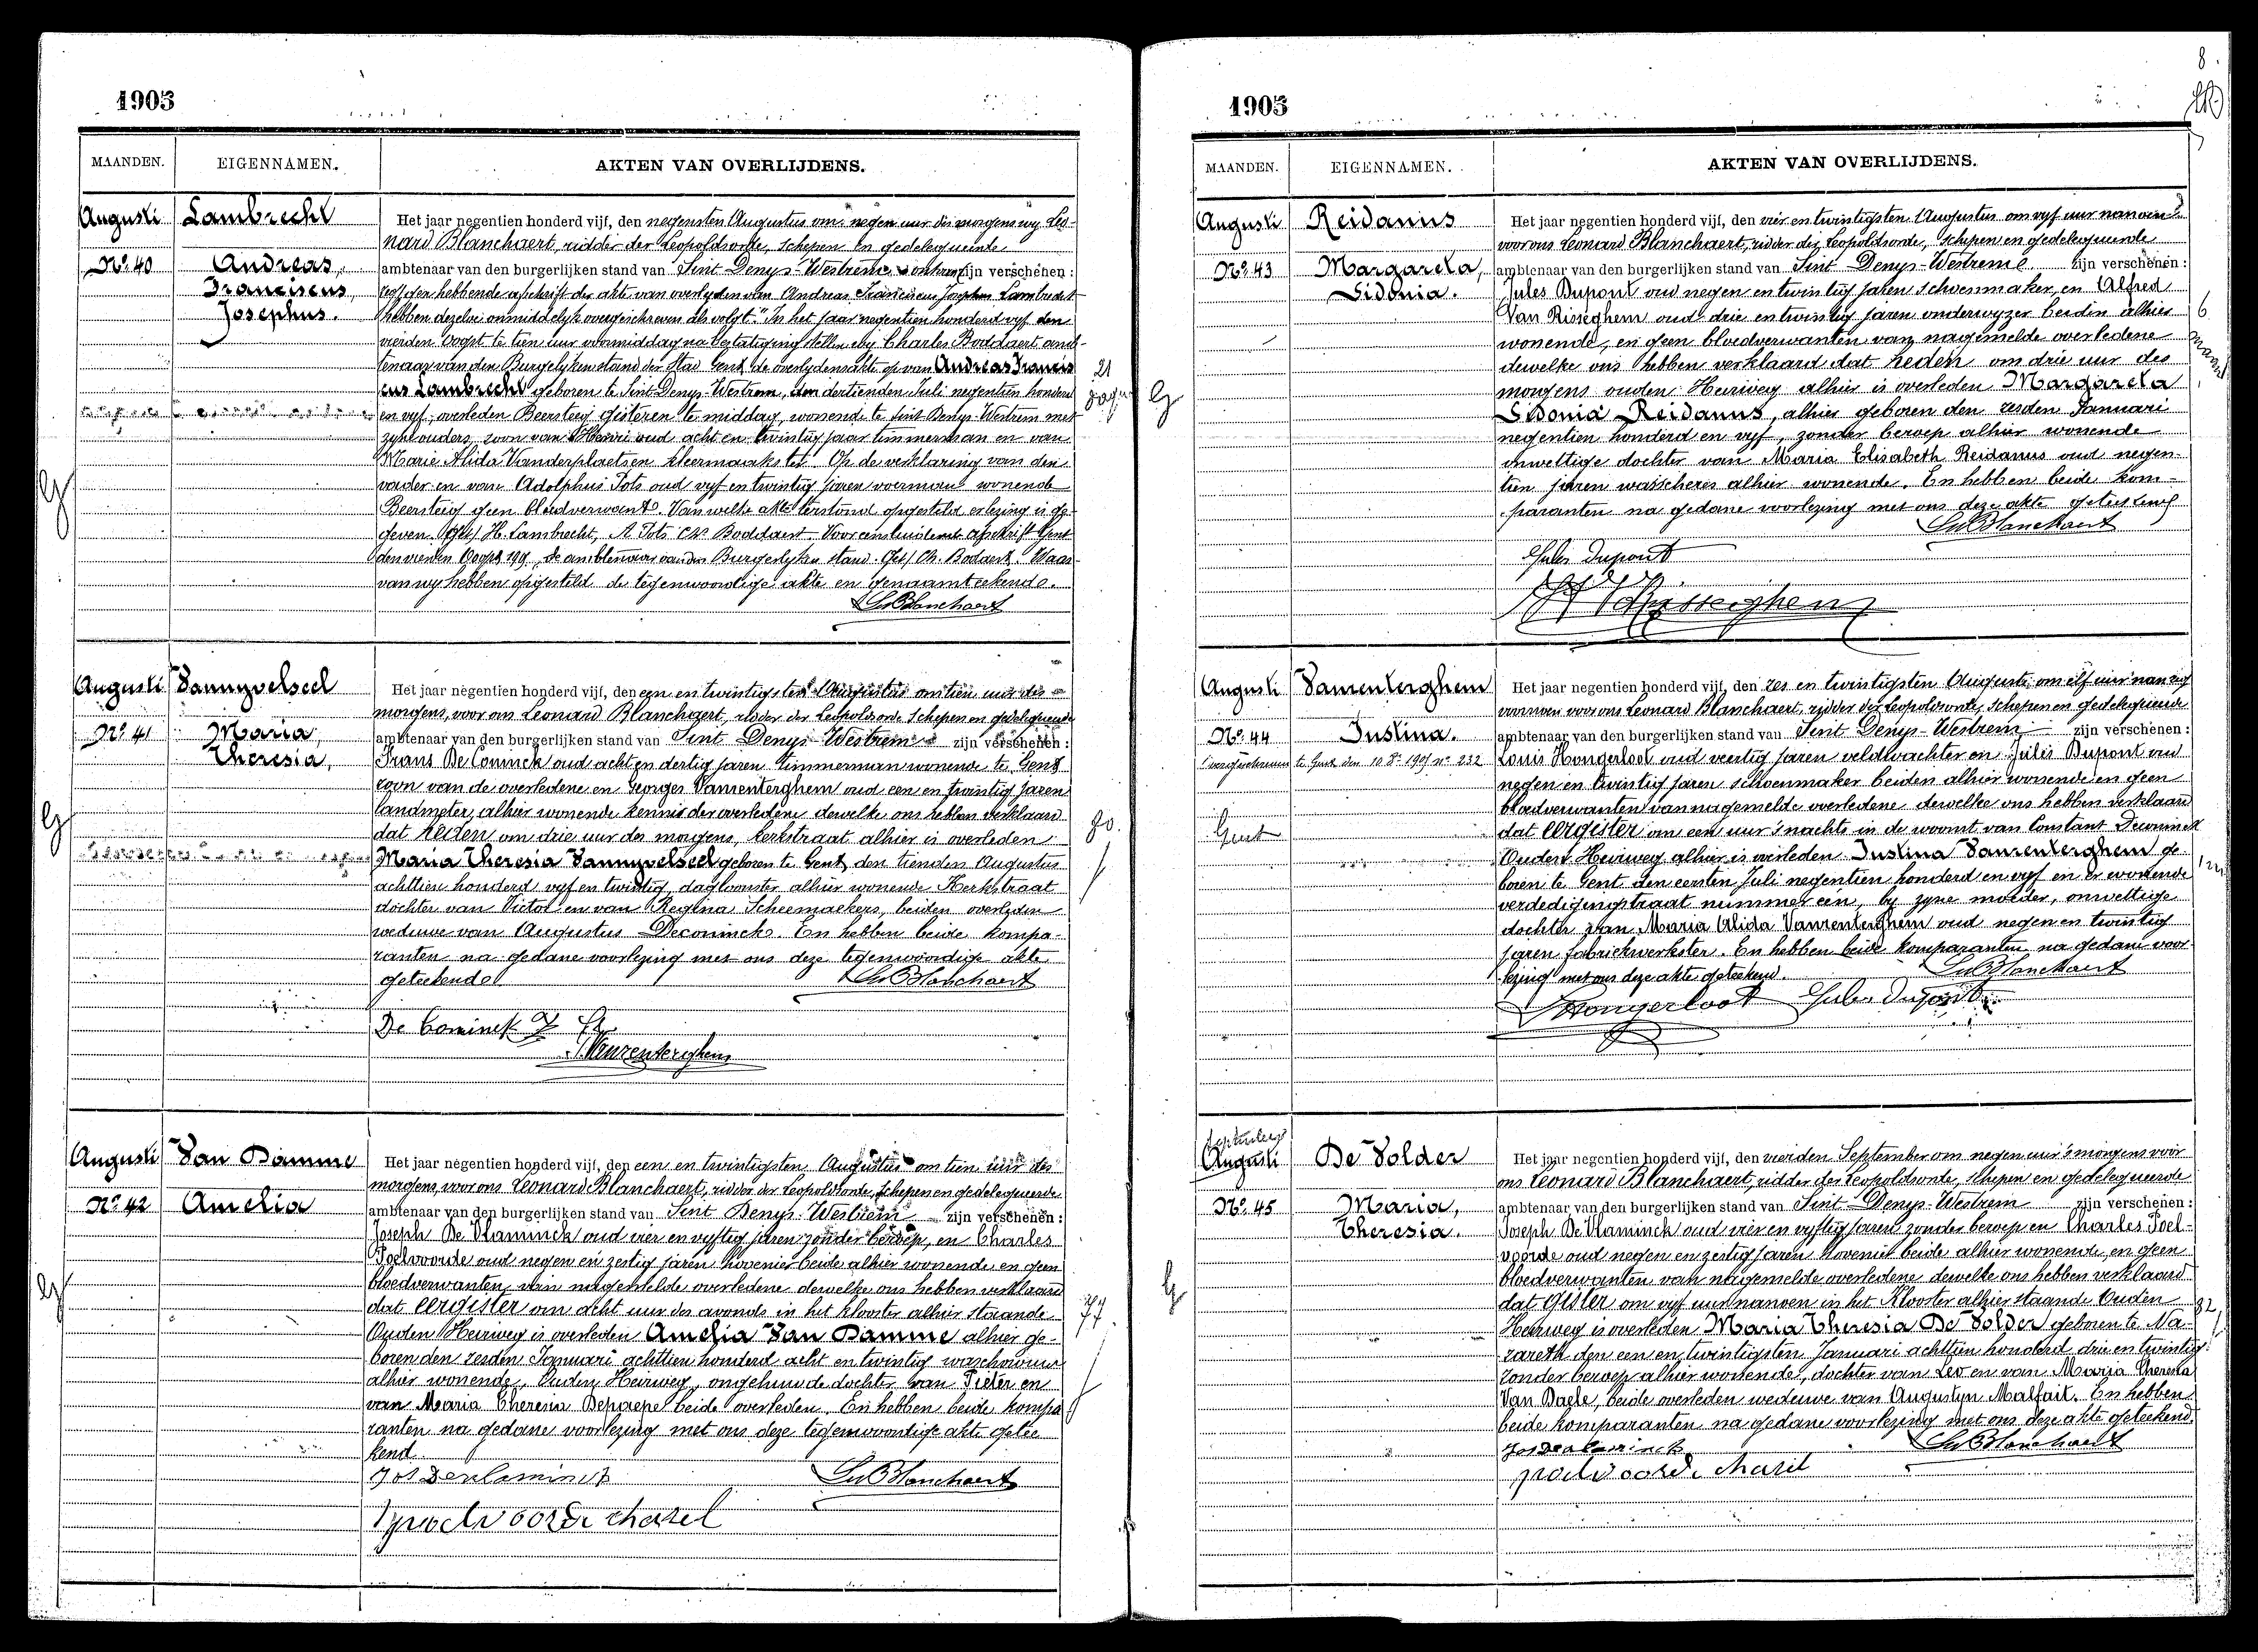 1905
MAANDEN. EIGENNAMEN. AKTEN VAN OVERLIJDENS.
Augusti Lambrecht
Nº 40 Andreas,
Franciscus,
Josephus.
Het jaar negentien honderd vijf, den negensten Augustus om negen uur des morgens wy Leo-
nard Blanchaert, ridder der Leopoldsorde, schepen en gedelegueerde
ambtenaar van den burgerlijken stand van Sint Denys-Westrem, zijn verschenen:
hebbende afschrift der akte van overlyden van Andreas Franciscus Josephus Lambrecht
hebben dezelve onmiddelyk overgeschreven als volgt. "In het jaar negentien honderd vyf den
vierden Oogst te tien uur voormiddag na bestatiging stellen wy Charles Boddaert amb-
tenaar van den Burgelyken stand der Stad Gent de overlydensakte op van Andreas Francis
cus Lambrecht geboren te Sint-Denys-Westrem, den dertienden Juli negentien honderd
en vyf, overleden Beersteeg gisteren te middag, wonende te Sint Denys-Westrem met
zyne ouders, zoon van Henri oud acht en twintig jaar timmerman en van
Marie Alida Vanderplaetsen kleermaakster. Op de verklaring van den
vader en van Adolphus Tots oud vyf en twintig jaren voerman wonende
Beersteeg geen bloedverwant. Van welke akte terstond opgesteld erlezing is ge-
geven. (Get) H. Lambrecht, A Tots Ch Boddaert. Voor eensluidend afschrift Gent
den vierden Oogst 190, de ambtenaar van den Burgerlyken stand. Get/ Ch. Bodaert. Waar-
van wy hebben opgesteld de tegenwoordige akte en genaamteekend.
Ld Blanchaert
21
dagen
Augusti Vannyvelseel
Nº 41 Maria,
Theresia,
Het jaar negentien honderd vijf, den een en twintigsten Augustus om tien uur des
morgens, voor ons Leonard Blanchaert, ridder der Leopoldsorde schepen en gedelegueerde
ambtenaar van den burgerlijken stand van Sint Denys Westrem zijn verschenen:
Frans De Coninck oud acht en dertig jaren timmerman wonende te Gent
zoon van de overledene en Georges Vanrenterghem oud een en twintig jaren
landmeter, alhier wonende kennis der overledene dewelke ons hebben verklaard
dat heden om drie uur des morgens, kerkstraat alhier is overleden
Maria Theresia Vannyvelseel geboren te Gent, den tienden Augustus
achttien honderd vyf en twintig, dagloonster alhier wonende Kerkstraat
dochter van Victor en van Regina Scheemaekers, beiden overleden
weduwe van Augustus Deconinck. En hebben beide kompa-
ranten na gedane voorlezing met ons deze tegenwoordige akte
geteekend Ld Blanchaert
De Coninck F
Vanrenterghem
80.
Augusti Van Damme
Nº 42 Amelia
Het jaar negentien honderd vijf, den een en twintigsten Augustus om tien uur des
morgens, voor ons Leonard Blanchaert, ridder der Leopoldsorde, schepen en gedelegueerde
ambtenaar van den burgerlijken stand van Sint Denys-Westrem zijn verschenen:
Joseph De Vlaminck oud vier en vyftig jaren zonder beroep, en Charles
Poelvoorde oud negen en zestig jaren hovenier beide alhier wonende en geen
bloedverwanten van nagemelde overledene dewelke ons hebben verklaard
dat eergister om acht uur des avonds in het klooster alhier staande
Ouden Heirweg is overleden Amelia Van Damme alhier ge-
boren den zesden Januari achttien honderd acht en twintig waschvrouw
alhier wonende, Ouden Heirweg, ongehuwde dochter van Pieter en
van Maria Theresia Depaepe beide overleden. En hebben beide kompa
ranten na gedane voorlezing met ons deze tegenwoordige akte getee
kend.
Jos Devlaminck Ld Blanchaert
poelvoorde charel
77
1905
8.
MAANDEN. EIGENNAMEN. AKTEN VAN OVERLIJDENS.
Augusti Reidanus
Nº 43 Margareta,
Sidonia.
Het jaar negentien honderd vijf, den vier en twintigsten Augustus om vyf uur nanoen
voor ons Leonard Blanchaert, ridder der Leopoldsorde, schepen en gedelegueerde
ambtenaar van den burgerlijken stand van Sint Denys-Westrem zijn verschenen:
Jules Dupont oud negen en twintig jaren schoenmaker, en Alfred
Van Risseghem oud drie en twintig jaren onderwyzer beiden alhier
wonende, en geen bloedverwanten van nagemelde overledene
dewelke ons hebben verklaard dat heden om drie uur des
morgens ouden Heirweg alhier is overleden Margareta
Sidonia Reidanus, alhier geboren den zesden Januari
negentien honderd en vyf, zonder beroep alhier wonende
onwettige dochter van Maria Elisabeth Reidanus oud negen-
tien jaren wasscheres alhier wonende. En hebben beide kom-
paranten na gedane voorlezing met ons deze akte geteekend
Ld Blanchaert
Jules Dupont
6
Augusti Vanrenterghem
Nº 44 Justina.
overgeschreven te Gent den 10 8r 1905 nº 232
Gent
Het jaar negentien honderd vijf, den zes en twintigsten Augusti om elf uur
voor ons Leonard Blanchaert, ridder der Leopoldsorde, schepen en gedelegueerde
ambtenaar van den burgerlijken stand van Sint Denys-Westrem zijn verschenen:
Louis Hongerloot oud veertig jaren veldwachter en Jules Dupont oud
negen en twintig jaren schoenmaker beiden alhier wonende en geen
bloedverwanten van nagemelde overledene dewelke ons hebben verklaard
dat eergister om een uur 's nachts in de woonst van Constant Deconinck
Ouden Heirweg alhier is overleden Justina Vanrenterghem ge-
boren te Gent den eersten Juli negentien honderd en vyf en er wonende
verdedigingstraat nummer een, by zyne moeder, onwettige
dochter van Maria Alida Vanrenterghem oud negen en twintig
jaren fabriekwerkster. En hebben beide komparanten na gedane voor
lezing met ons deze akte geteekend. Ld Blanchaert
Hongerloot Jules Dupont
September
Augusti De Volder
Nº 45 Maria,
Theresia.
Het jaar negentien honderd vijf, den vierden September om negen uur 's morgens voor
ons Leonard Blanchaert, ridder der Leopoldsorde, schepen en gedelegueerde
ambtenaar van den burgerlijken stand van Sint Denys-Westrem zijn verschenen:
Joseph De Vlaminck oud vier en vyftig jaren zonder beroep en Charles Poel-
voorde oud negen en zestig jaren hovenier beide alhier wonende, en geen
bloedverwanten van nagemelde overledene dewelke ons hebben verklaard
dat gister om vyf uur nanoen in het Klooster alhier staande Ouden
Heirweg is overleden Maria Theresia De Volder geboren te Na-
zareth den een en twintigsten Januari achttien honderd drie en twintig
zonder beroep alhier wonende, dochter van Leo en van Maria Theresia
Van Daele, beide overleden weduwe van Augustyn Malfait. En hebben
beide komparanten na gedane voorlezing met ons deze akte geteekend.
Jos Devlaminck Ld Blanchaert
poelvoorde charel
82